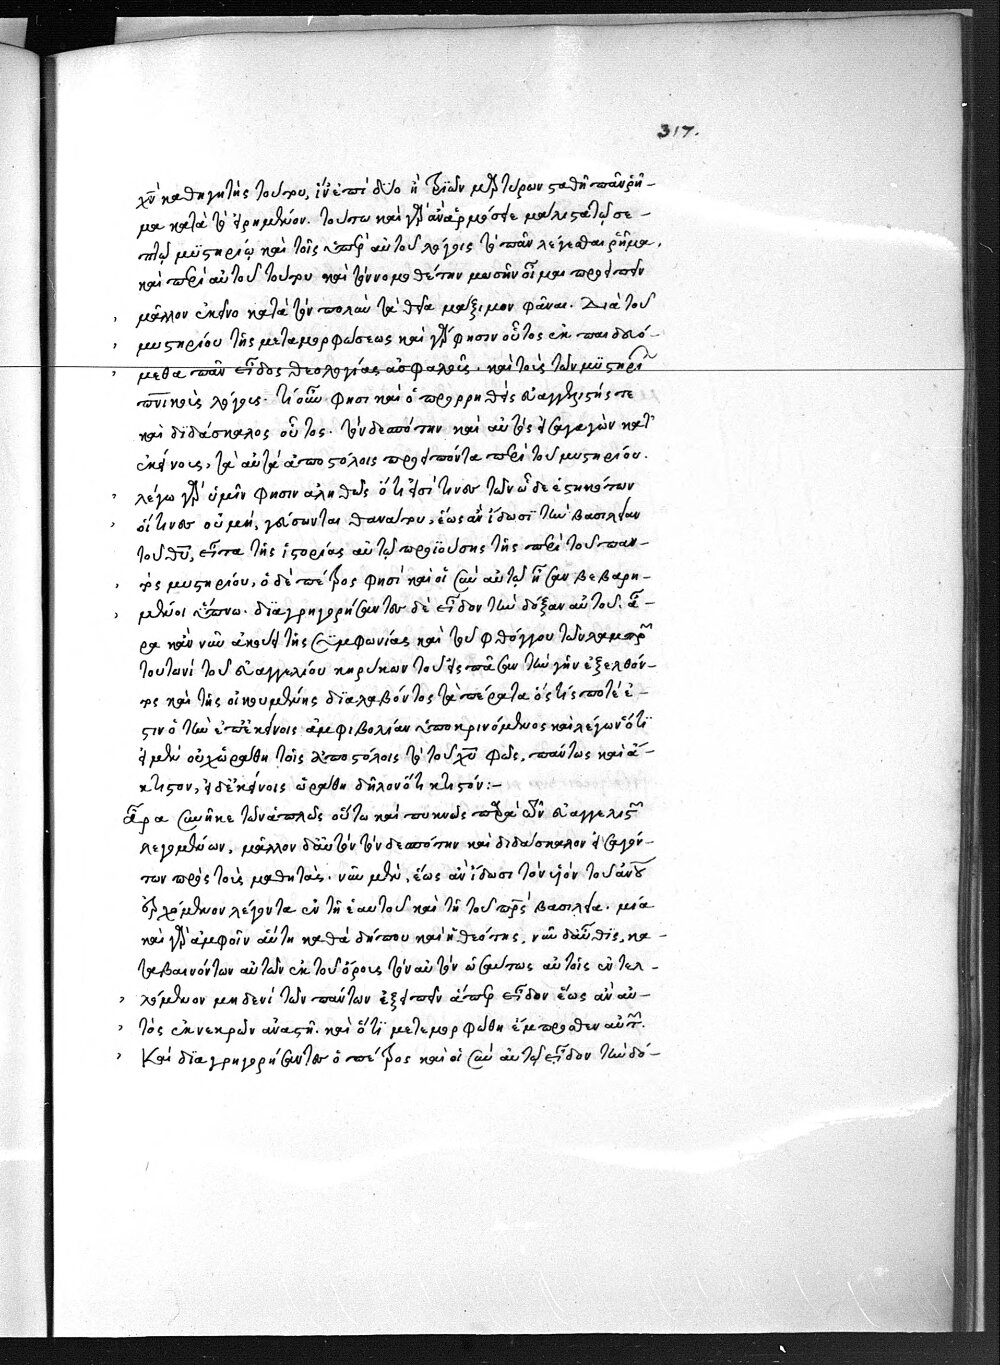 317.
χῦ καθηγητὴς τούτου, ἵν' ἐπὶ δύο ἢ τριῶν μαρτύρων σταθῇ πᾶν ῥῆ-
μα κατὰ τὸ εἰρημένον. τούτω καὶ γὰρ ἂν ἁρμόσειε μάλιστα τῷ σε-
πτῷ μυστηρίῳ καὶ τοῖς ὑπὲρ αὐτοῦ λόγοις τὸ πᾶν λέγεσθαι ῥῆμα,
καὶ περὶ αὐτοῦ τούτου καὶ τὸν νομοθέτην μωσῆν οἶμαι προειπεῖν
μᾶλλον ἐκεῖνο κατὰ τὸν πολὺν τὰ θεῖα μάξιμον φάναι. Διὰ τοῦ
μυστηρίου τῆς μεταμορφώσεως καὶ γάρ φησιν οὗτος ἐκπαιδευό-
μεθα πᾶν εἶδος θεολογίας ἀσφαλῶς. καὶ τοὺς τῶν μυστηρί
πνικοὺς λόγους. τί οὖν φησι καὶ ὁ προρρηθεὶς εὐαγγελιστής τε
καὶ διδάσκαλος οὗτος. τὸν δεσπότην καὶ αὐτὸς εἰσαγαγὼν κατ'
ἐκείνους, τὰ αὐτὰ ἀποστόλοις προειπόντα περὶ τοῦ μυστηρίου.
λέγω γὰρ ὑμῖν φησιν ἀληθῶς ὅτι εἰσί τινες τῶν ὧδε ἑστηκότων
οἵτινες οὐ μή, γεύσονται θανάτου, ἕως ἂν ἴδωσι τὴν βασιλείαν
τοῦ θῦ, εἶτα τῆς ἱστορίας αὐτῷ προϊούσης τῆς περὶ τοῦ παν-
τὸς μυστηρίου, ὁ δὲ πέτρος φησὶ καὶ οἱ σὺν αὐτῷ ἦσαν βεβαρη-
μένοι ὕπνω. διαγρηγορήσαντες δὲ εἶδον τὴν δόξαν αὐτοῦ. ἆ-
ρα κἂν νῦν ἀκούει τῆς συμφωνίας καὶ τοῦ φθόγγου τῶν λαμπρῶν
τουτωνὶ τοῦ εὐαγγελίου κηρύκων τοῦ εἰς πᾶσαν τὴν γῆν ἐξελθόν-
τος καὶ τῆς οἰκουμένης διαλαβόντος τὰ πέρατα ὅστις ποτέ ἐ-
στιν ὁ τὴν ἐπ' ἐκείνοις ἀμφιβολίαν ὑποκρινόμενος καὶ λέγων ὅτι
εἰ μὲν οὐχ ὡράθη τοῖς ἀποστόλοις τὸ τοῦ χῦ φῶς, πάντως καὶ ἄ-
κτιστον, εἰ δ' ἐκείνοις ὡράθη δηλονότι κτιστόν:-
ἆρα συνῆκε τῶν ἁπλῶς οὕτω καὶ πυκνῶς παρὰ τῶν εὐαγγελιστῶν
λεγομένων, μᾶλλον δ' αὐτὸν τὸν δεσπότην καὶ διδάσκαλον εἰσαγόν-
των πρὸς τοὺς μαθητάς. νῦν μὲν, ἕως ἂν ἴδωσι τὸν υἱὸν τοῦ ἀνου
ἐρχόμενον λέγοντα ἐν τῇ ἑαυτοῦ καὶ τῇ τοῦ πρς βασιλεία. μία
καὶ γὰρ ἀμφοῖν αὕτη καθὰ δήπου καὶ ἡ θεότης, νῦν δ' αὖθις, κα-
ταβαινόντων αὐτῶν ἐκ τοῦ ὄρους τὸν αὐτὸν ὡσαύτως αὐτοῖς ἐντελ-
λόμενον μηδενὶ τῶν πάντων ἐξειπεῖν ἅπερ εἶδον ἕως ἂν αὐ-
τὸς ἐκ νεκρῶν ἀναστῇ. καὶ ὅτι μετεμορφώθη ἔμπροσθεν αὐτῶν.
Καὶ διαγρηγορήσαντες ὁ πέτρος καὶ οἱ σὺν αὐτῷ εἶδον τὴν δό-